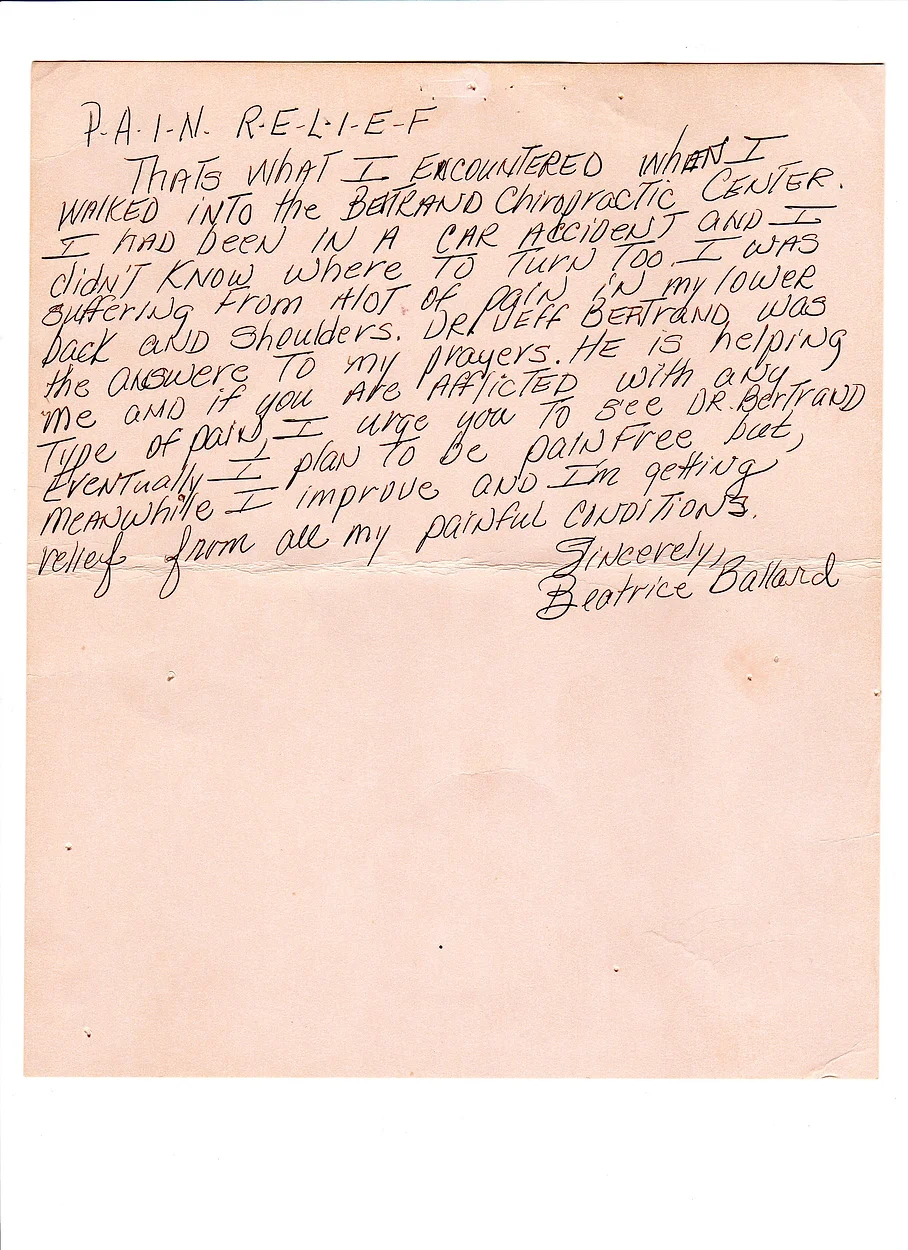 P-A-I-N- R-E-L-I-E-F
THATS WHAT I ENCOUNTERED WHEN I
WALKED INTO the BERTRAND Chiropractic CENTER.
I HAD been IN A CAR ACCIDENT AND I
didN'T KNOW where TO TURN TOO. I WAS
suffering From Alot of pain in my lower
back AND shoulders. DR. JEFF BERTRAND was
the answere To my prayers. HE is helping
me AND if you ARE AFFlicTED with any
Type of pain, I urge you To see DR. BertrAND
Eventually I plan To be painFree but,
MEANWhile I improve AND I'm getting
relief from all my painful CONDITIONS.
Sincerely,
Beatrice Ballard